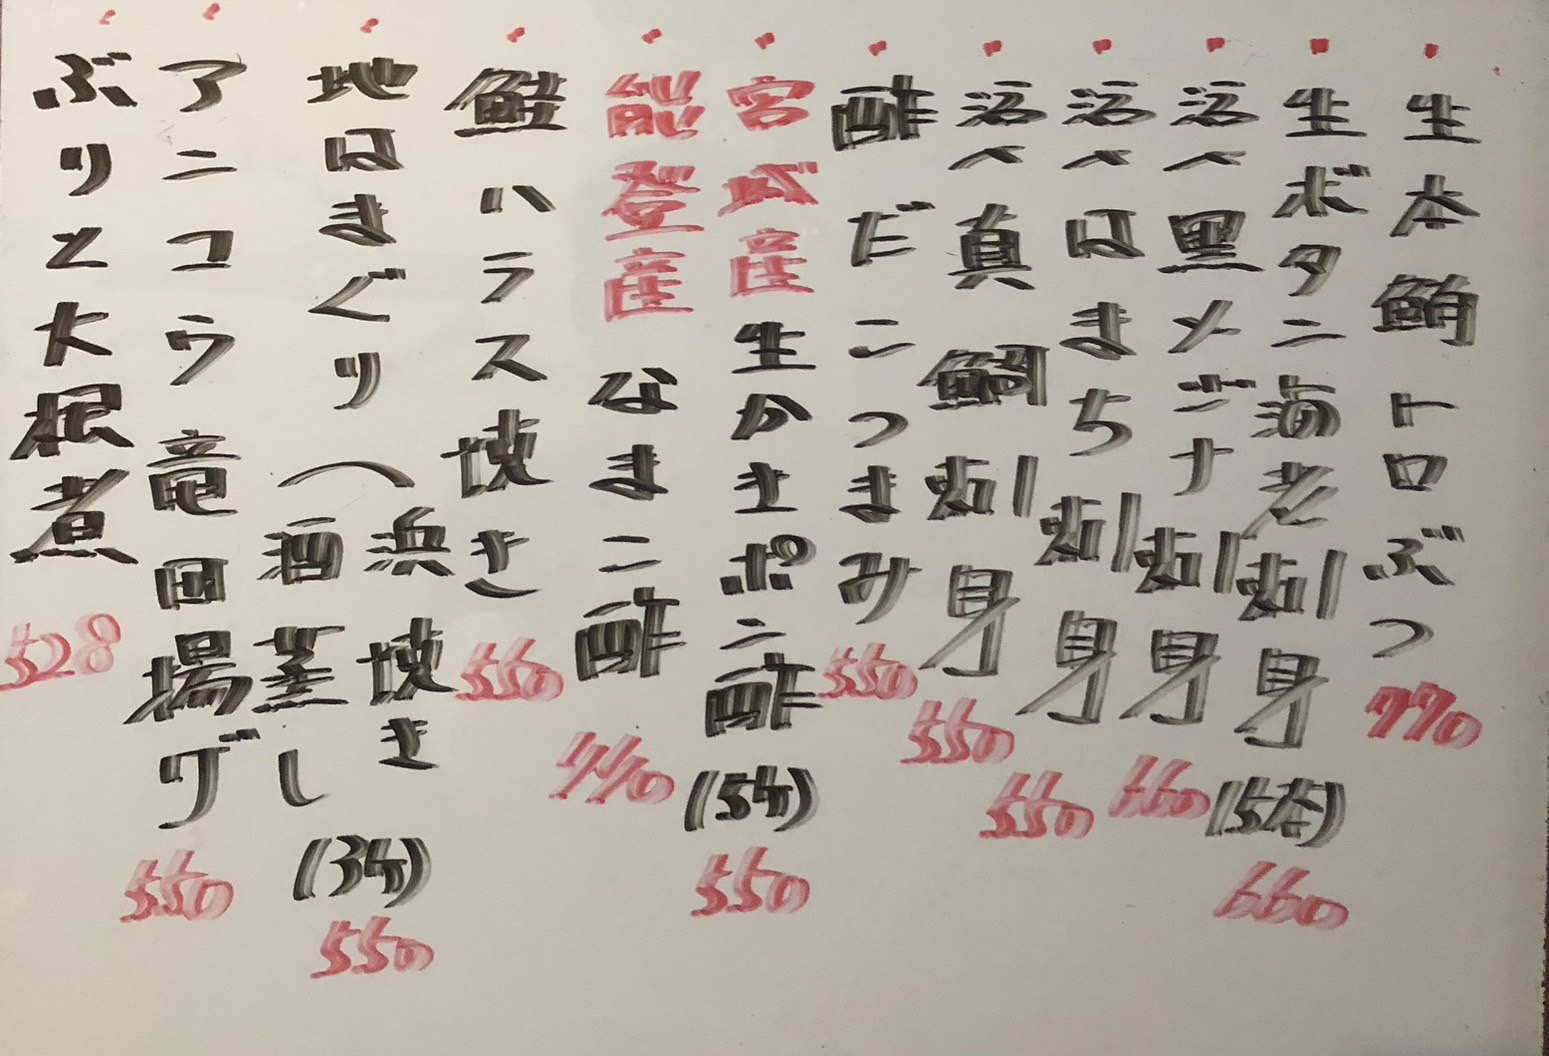 ・生本鮪トロぶつ 770
・生ボタン海老刺身(5本) 660
・活〆黒メジナ刺身 660
・活〆はまち刺身 550
・活〆真鯛刺身 550
・酢だこつまみ 550
・宮城産生かきポン酢(5ケ) 550
・能登産なまこ酢 770
・鮭ハラス焼き 550
・地はまぐり(浜焼き
酒蒸し(3ケ) 550
・アンコウ竜田揚げ 550
・ぶりと大根煮 528